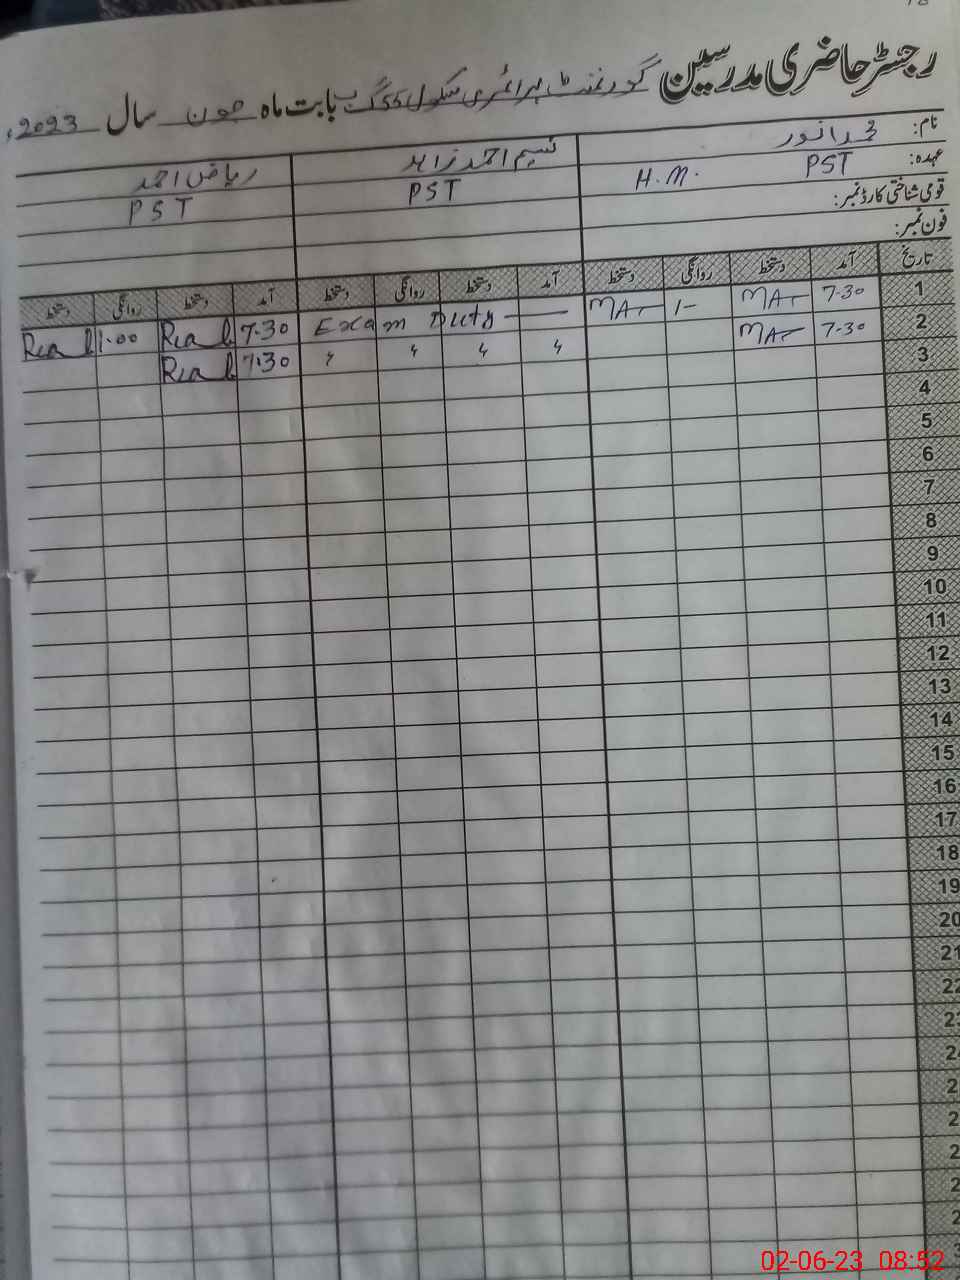 رجسٹر حاضری مدرسین گورنمنٹ پرائمری سکول 55 گ ب بابت ماہ جون سال 2023ء
نام: محمد انور نسیم احمد زاہد ریاض احمد
عہدہ: PST H.M. PST PST
قومی شناختی کارڈ نمبر:
فون نمبر:
تاریخ آمد دستخط روانگی دستخط آمد دستخط روانگی دستخط آمد دستخط روانگی دستخط
1 7-30 MAr 1- MAr Exam Duty 7-30 1-00
2 7-30 MAr 〃 〃 〃 〃 7-30
3
4
5
6
7
8
9
10
11
12
13
14
15
16
17
18
19
20
21
22
02-06-23 08:52